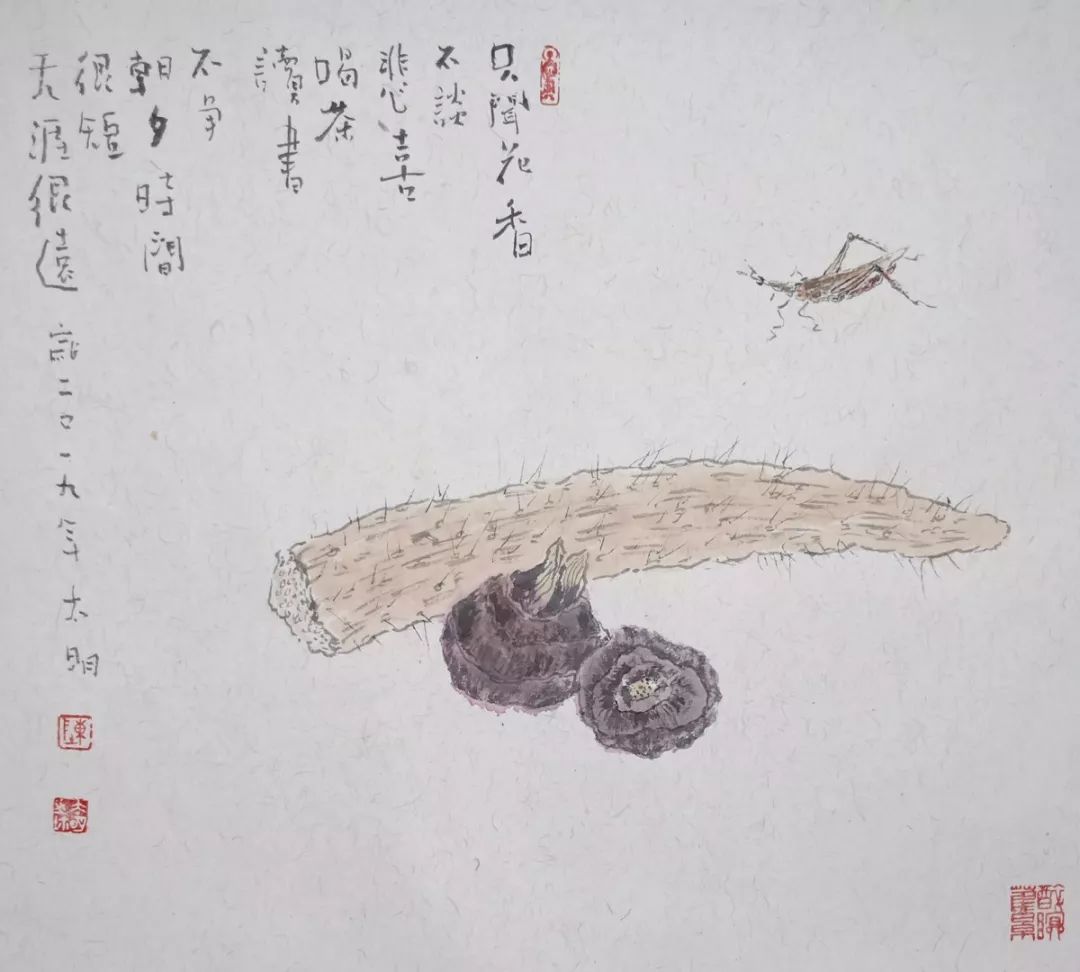 只聞花香
不談
悲喜
喝茶
讀書
不爭
朝夕時間
很短
天涯很遠 二〇一九年太明
陳